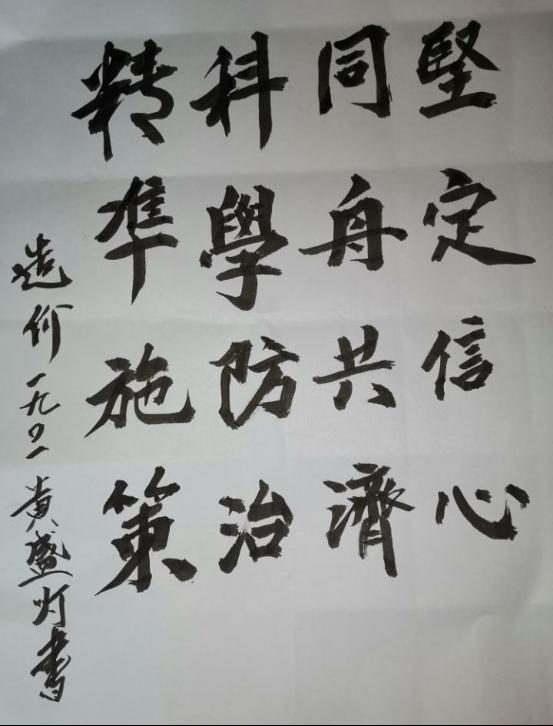 堅定信心
同舟共濟
科學防治
精準施策
造价一九〇一黄盛灯書